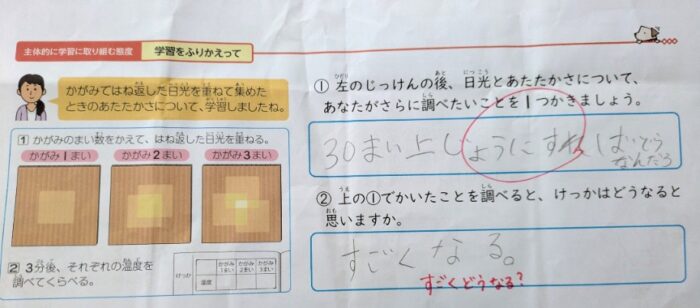 主体的に学習に取り組む態度 学習をふりかえって
かがみではね返した日光を重ねて集めた
ときのあたたかさについて、学習しましたね。
1 かがみのまい数をかえて、はね返した日光を重ねる。
かがみ1まい かがみ2まい かがみ3まい
2 3分後、それぞれの温度を
調べてくらべる。
けっか
かがみ1まい かがみ2まい かがみ3まい
温度
① 左のじっけんの後、日光とあたたかさについて、
あなたがさらに調べたいことを1つかきましょう。
30まい上じょうにすればどう
なんだろ
② 上の①でかいたことを調べると、けっかはどうなると
思いますか。
すごくなる。
すごくどうなる?